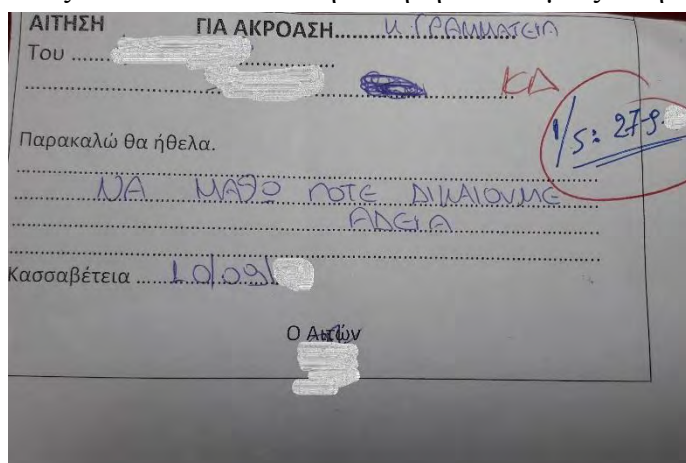 ΑΙΤΗΣΗ ΓΙΑ ΑΚΡΟΑΣΗ......Κ. ΓΡΑΜΜΑΤΕΙΑ
Του
ΚΔ
1/5: 27-9-
Παρακαλώ θα ήθελα.
ΝΑ ΜΑΘΩ ΠΟΤΕ ΔΙΚΑΙΟΥΜΕ
ΑΔΕΙΑ
Κασσαβέτεια ......10/09/
Ο Αιτών